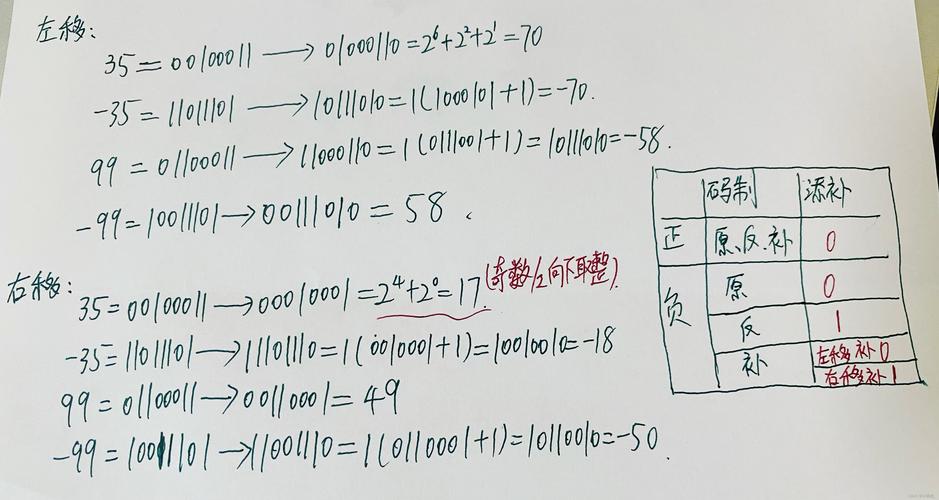 左移:
35=00100011→01000110=2⁶+2²+2¹=70
-35=11011101→10111010=1(1000101+1)=-70.
99=01100011→11000110=1(0111001+1)=10111010=-58.
-99=10011101→00111010=58.
码制 添补
正 原、反、补 0
负 原 0
反 1
补 左移补0
右移补1
右移:
35=00100011→00010001=2⁴+2⁰=17.(奇数/2向下取整)
-35=11011101→11101110=1(0010001+1)=10010010=-18
99=01100011→00110001=49
-99=10011101→11001110=1(0110001+1)=10110010=-50.